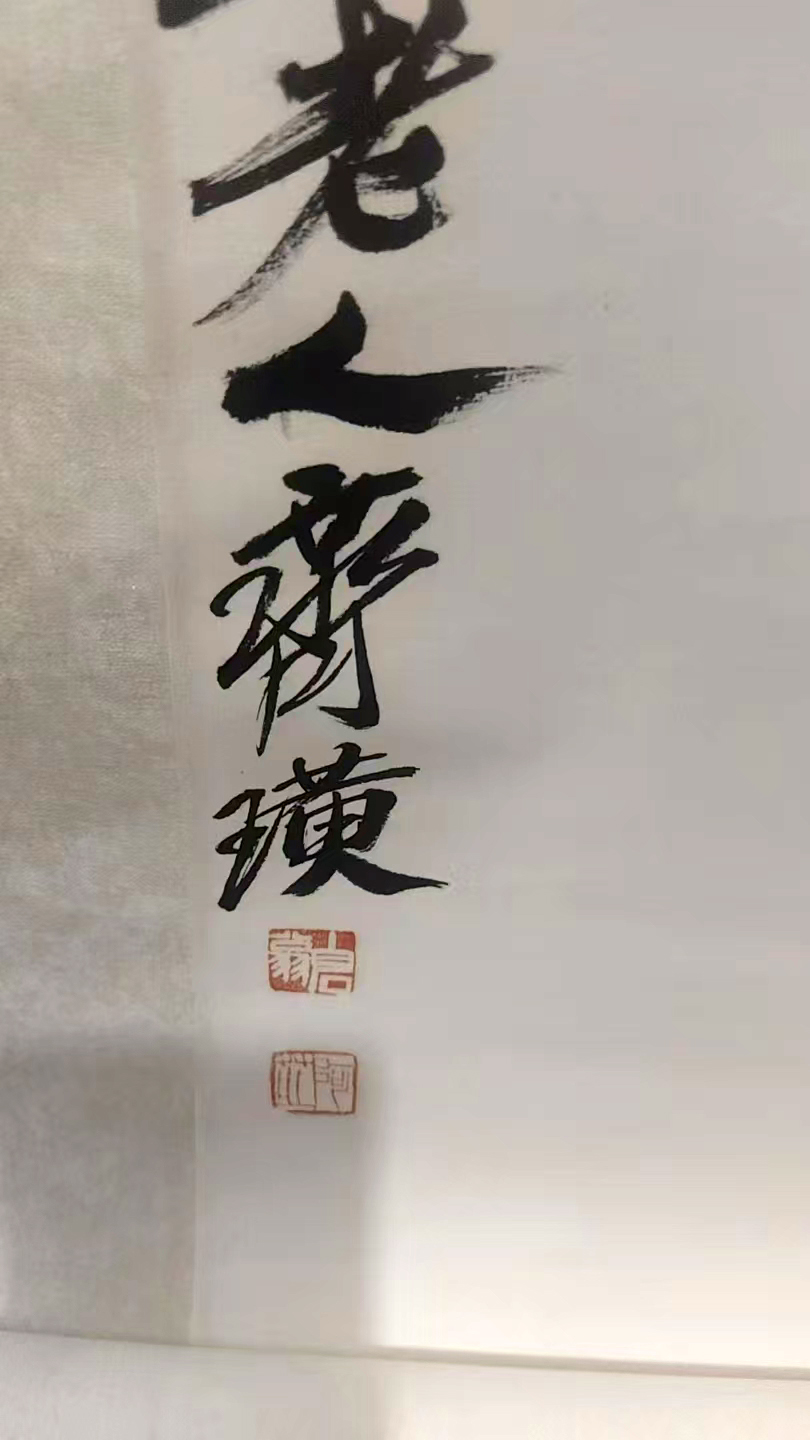 老人齊璜
白石翁
阿芝